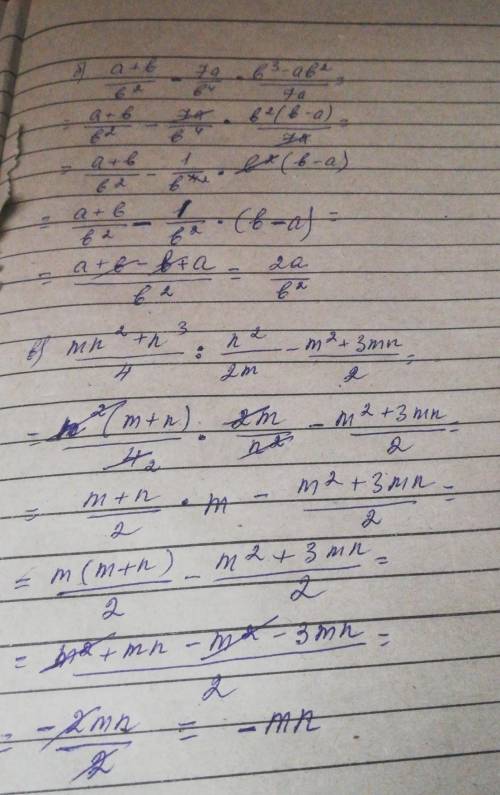 б) (a+b)/b² - 7a/b⁴ · (b³-ab²)/7a =
= (a+b)/b² - 7a/b⁴ · b²(b-a)/7a =
= (a+b)/b² - 1/b⁴² · b²(b-a)
= (a+b)/b² - 1/b² · (b-a) =
= (a+b-b+a)/b² = 2a/b²
в) (mn²+n³)/4 : n²/2m - (m²+3mn)/2 =
= n²(m+n)/4₂ · 2m/n² - (m²+3mn)/2 =
= (m+n)/2 · m - (m²+3mn)/2 =
= m(m+n)/2 - (m²+3mn)/2 =
= (m²+mn-m²-3mn)/2 =
= -2mn/2 = -mn